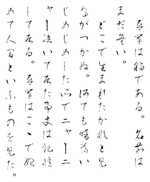 吾輩は猫である。名前は
まだ無い。
どこで生れたかとんと見
当がつかぬ。何でも暗薄い
じめじめした所でニャーニ
ャー泣いて居た事丈は記憶
して居る。吾輩はここで始
めて人間といふものを見た。